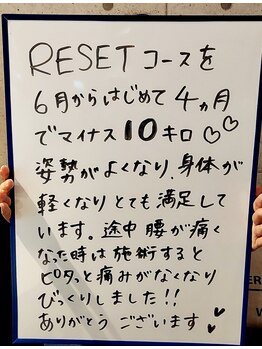 RESETコースを
6月からはじめて4ヵ月
でマイナス10キロ♡♡
姿勢がよくなり、身体が
軽くなりとても満足して
います。途中腰が痛く
なった時は施術すると
ピタッと痛みがなくなり
びっくりしました!!
ありがとうございます♥♥